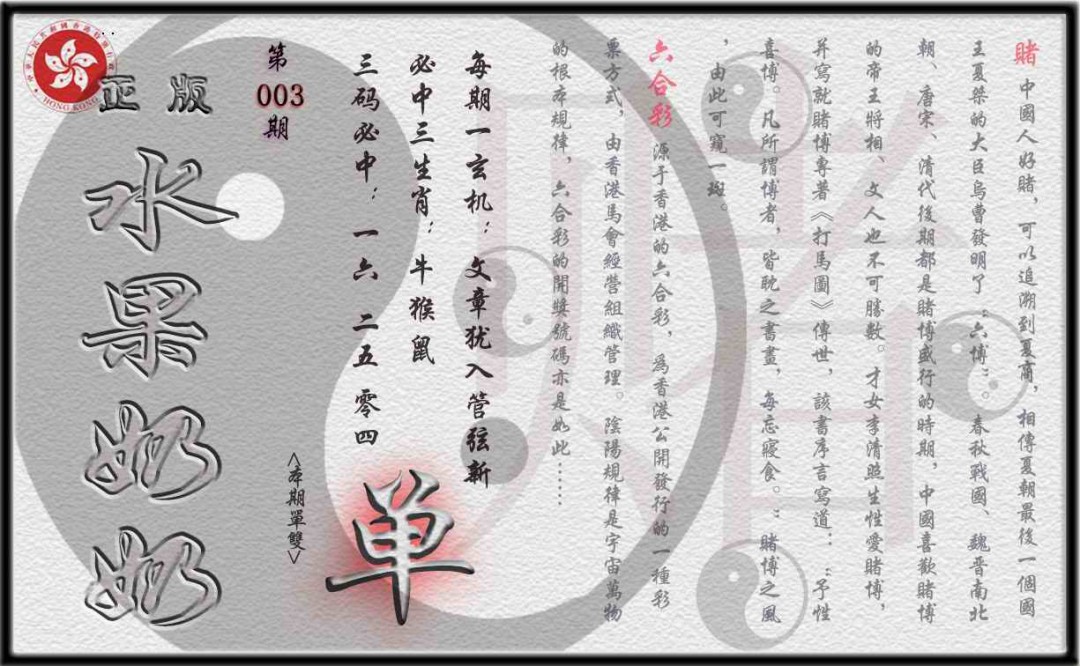 賭 中國人好賭，可以追溯到夏商，相傳夏朝最後一個國
王夏桀的大臣烏曹發明了“六博”。春秋戰國、魏晉南北
朝、唐宋、清代後期都是賭博盛行的時期，中國喜歡賭博
的帝王將相、文人也不可勝數。才女李清照生性愛賭博，
并寫就賭博專著《打馬圖》傳世，該書序言寫道：“予性
喜博。凡所謂博者，皆耽之書畫，每忘寢食。”賭博之風
，由此可窺一斑。
六合彩 源于香港的六合彩，爲香港公開發行的一種彩
票方式，由香港馬會經營組織管理。陰陽規律是宇宙萬物
的根本規律，六合彩的開獎號碼亦是如此……
每期一玄机：文章犹入管弦新
必中三生肖：牛猴鼠
三码必中：一六 二五 零四
单
<本期單雙>
第
003
期
正版
水果奶奶
HONG KONG